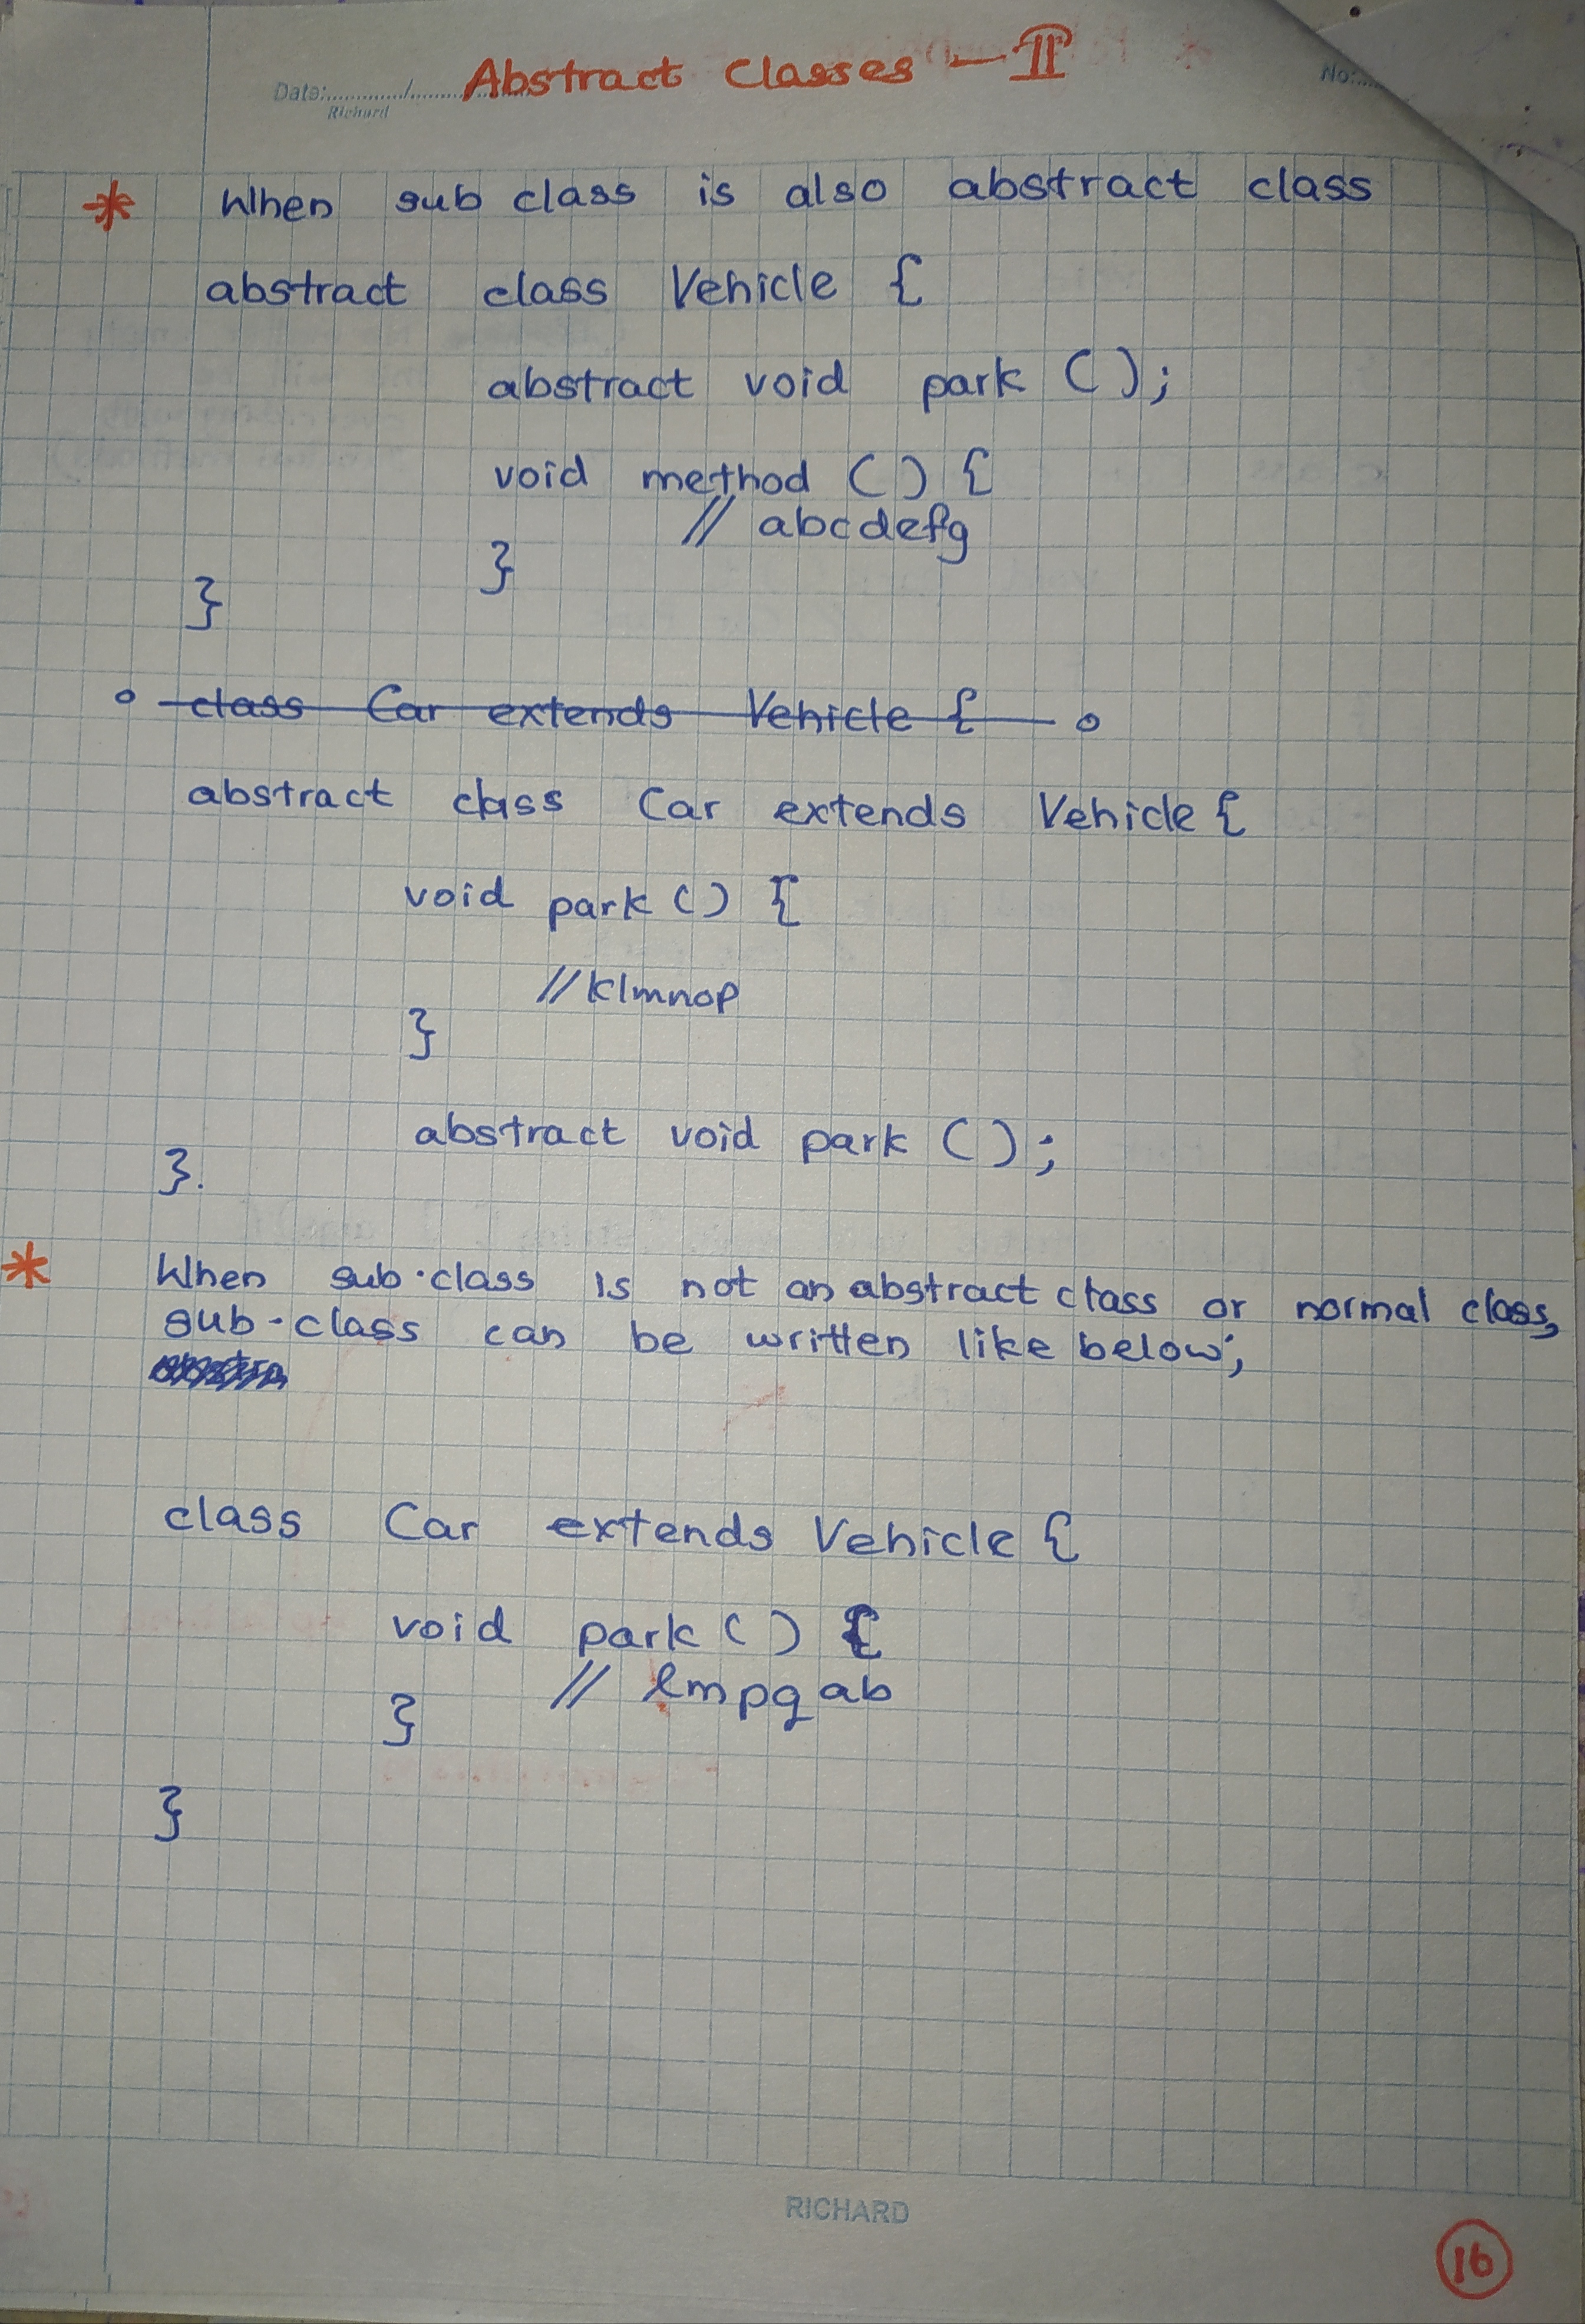 Abstract Classes - II
Date:............/.........
Richard
No:....
* When sub class is also abstract class
abstract class Vehicle {
abstract void park ();
void method () {
// abcdefg
}
}
class Car extends Vehicle {
abstract class Car extends Vehicle {
void park () {
//klmnop
}
abstract void park ();
}.
* When sub-class is not an abstract class or normal class,
sub-class can be written like below;
class Car extends Vehicle {
void park () {
// lmpqab
}
}
RICHARD
16